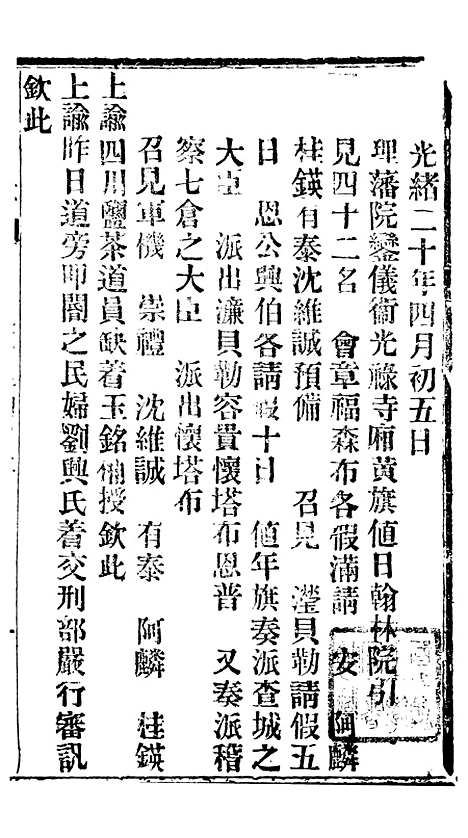 光緒二十年四月初五日
理藩院鑾儀衞光祿寺廂黃旗值日翰林院引
見四十二名　會章福森布各假滿請　安　阿麟
桂鍈有泰沈維誠預備　召見　瀅貝勒請假五
日　恩公興伯各請假十日　值年旗奏派查城之
大臣　派出濂貝勒容貴懷塔布恩普　又奏派稽
察七倉之大臣　派出懷塔布
召見軍機　崇禮　沈維誠　有泰　阿麟　桂鍈
上諭四川鹽茶道員缺着玉銘補授欽此
上諭昨日道旁叩閽之民婦劉興氏着交刑部嚴行審訊
欽此